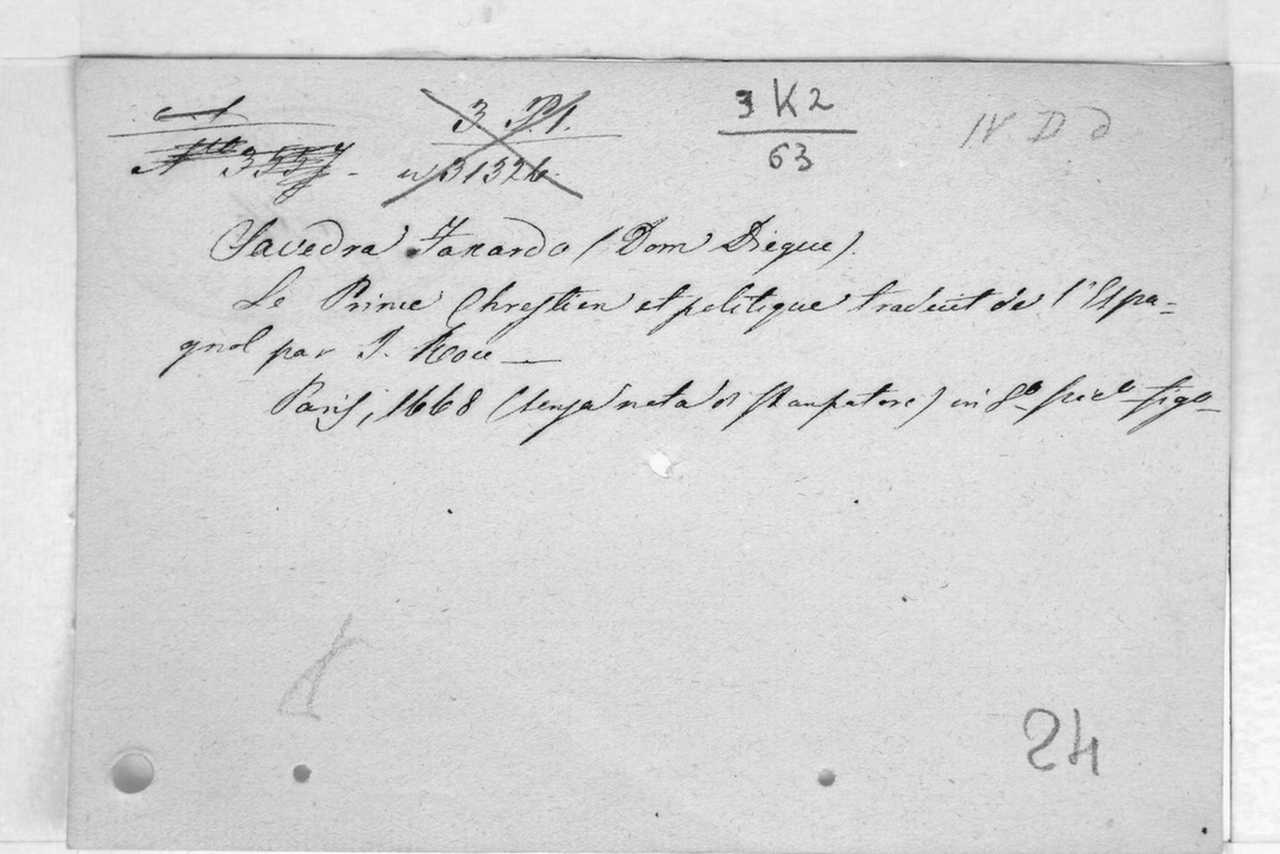 3 P.1. 3 K 2 IV D d
3557 - n 31326. 63
Savedra Faxardo (Dom Diegue).
Le Prince Chrestien et politique traduit de l'Espa-
gnol par J. Rou —
Paris, 1668 (senza nota di stampatore) in 8º picº figº
24